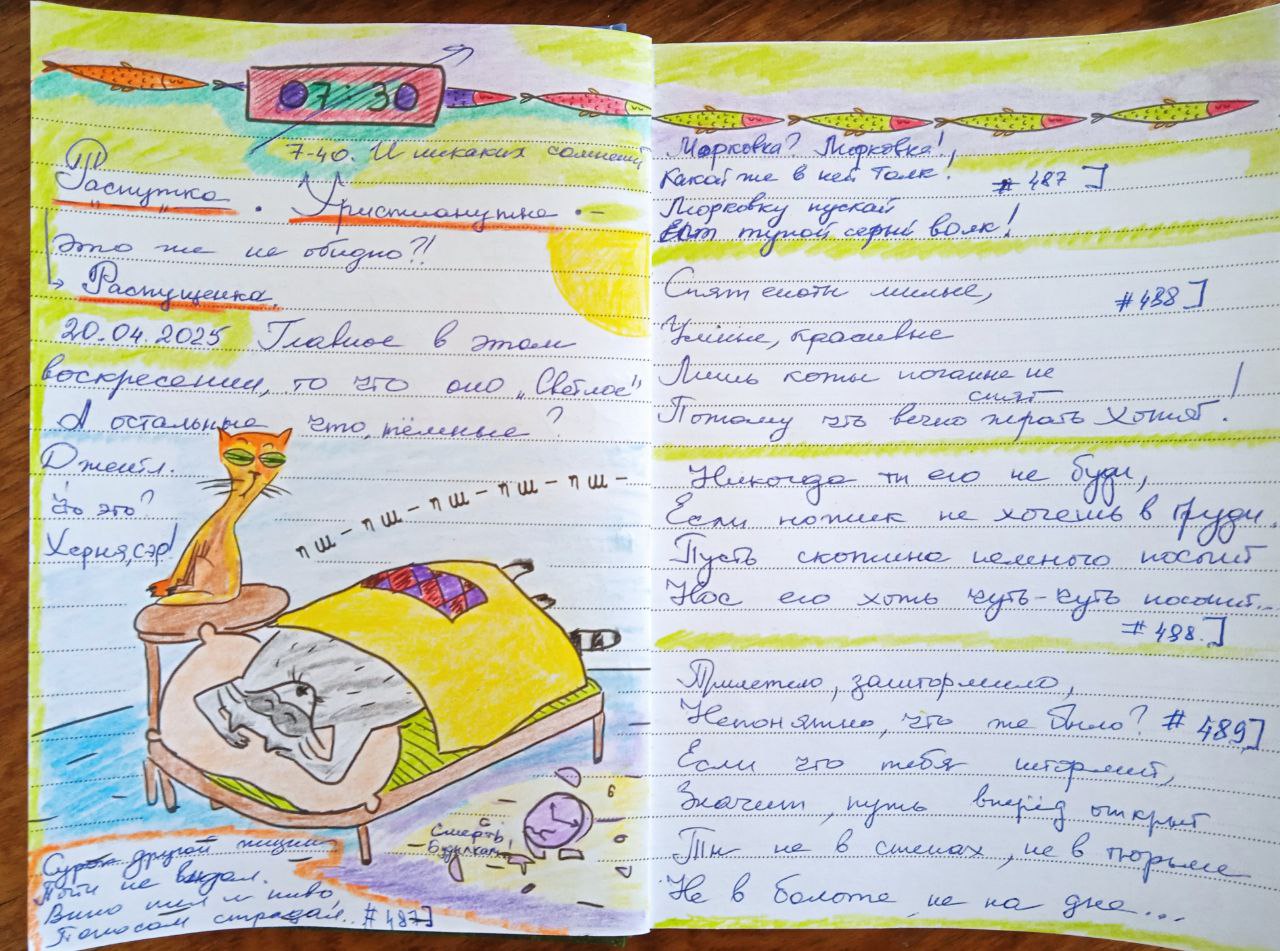 7:30
7-40. И никаких сомнений
Распутка. Христианутка.
Это же не обидно?!
→ Распущенка.
20.04.2025 Главное в этом
воскресении, то что оно "Светлое"
А остальные что, тёмные?
Джентл.
Что это?
Херня, сэр!
пш-пш-пш-пш-пш-
Смерть
будилкам!
другой пищи
Почти не видал.
Вино пил и пиво,
Поносом страдал.. #487]
Морковка? Морковка!,
Какой же в ней толк. #487]
Морковку пускай
Ест тупой серый волк!
Спят еноты милые, #438]
Умные, красивые
Лишь коты поганые не
спят
Потому чть вечно жрать хотят.
Никогда ты его не буди,
Если ножик не хочешь в груди.
Пусть скотина немного поспит
Нос его хоть чуть-чуть посопит...
#438.]
Прилетело, заштормило,
Непонятно, что же было? #489]
Если что тебя штормит,
Значит, путь вперёд открыт
Ты не в стенах, не в тюрьме
Не в болоте, не на дне...